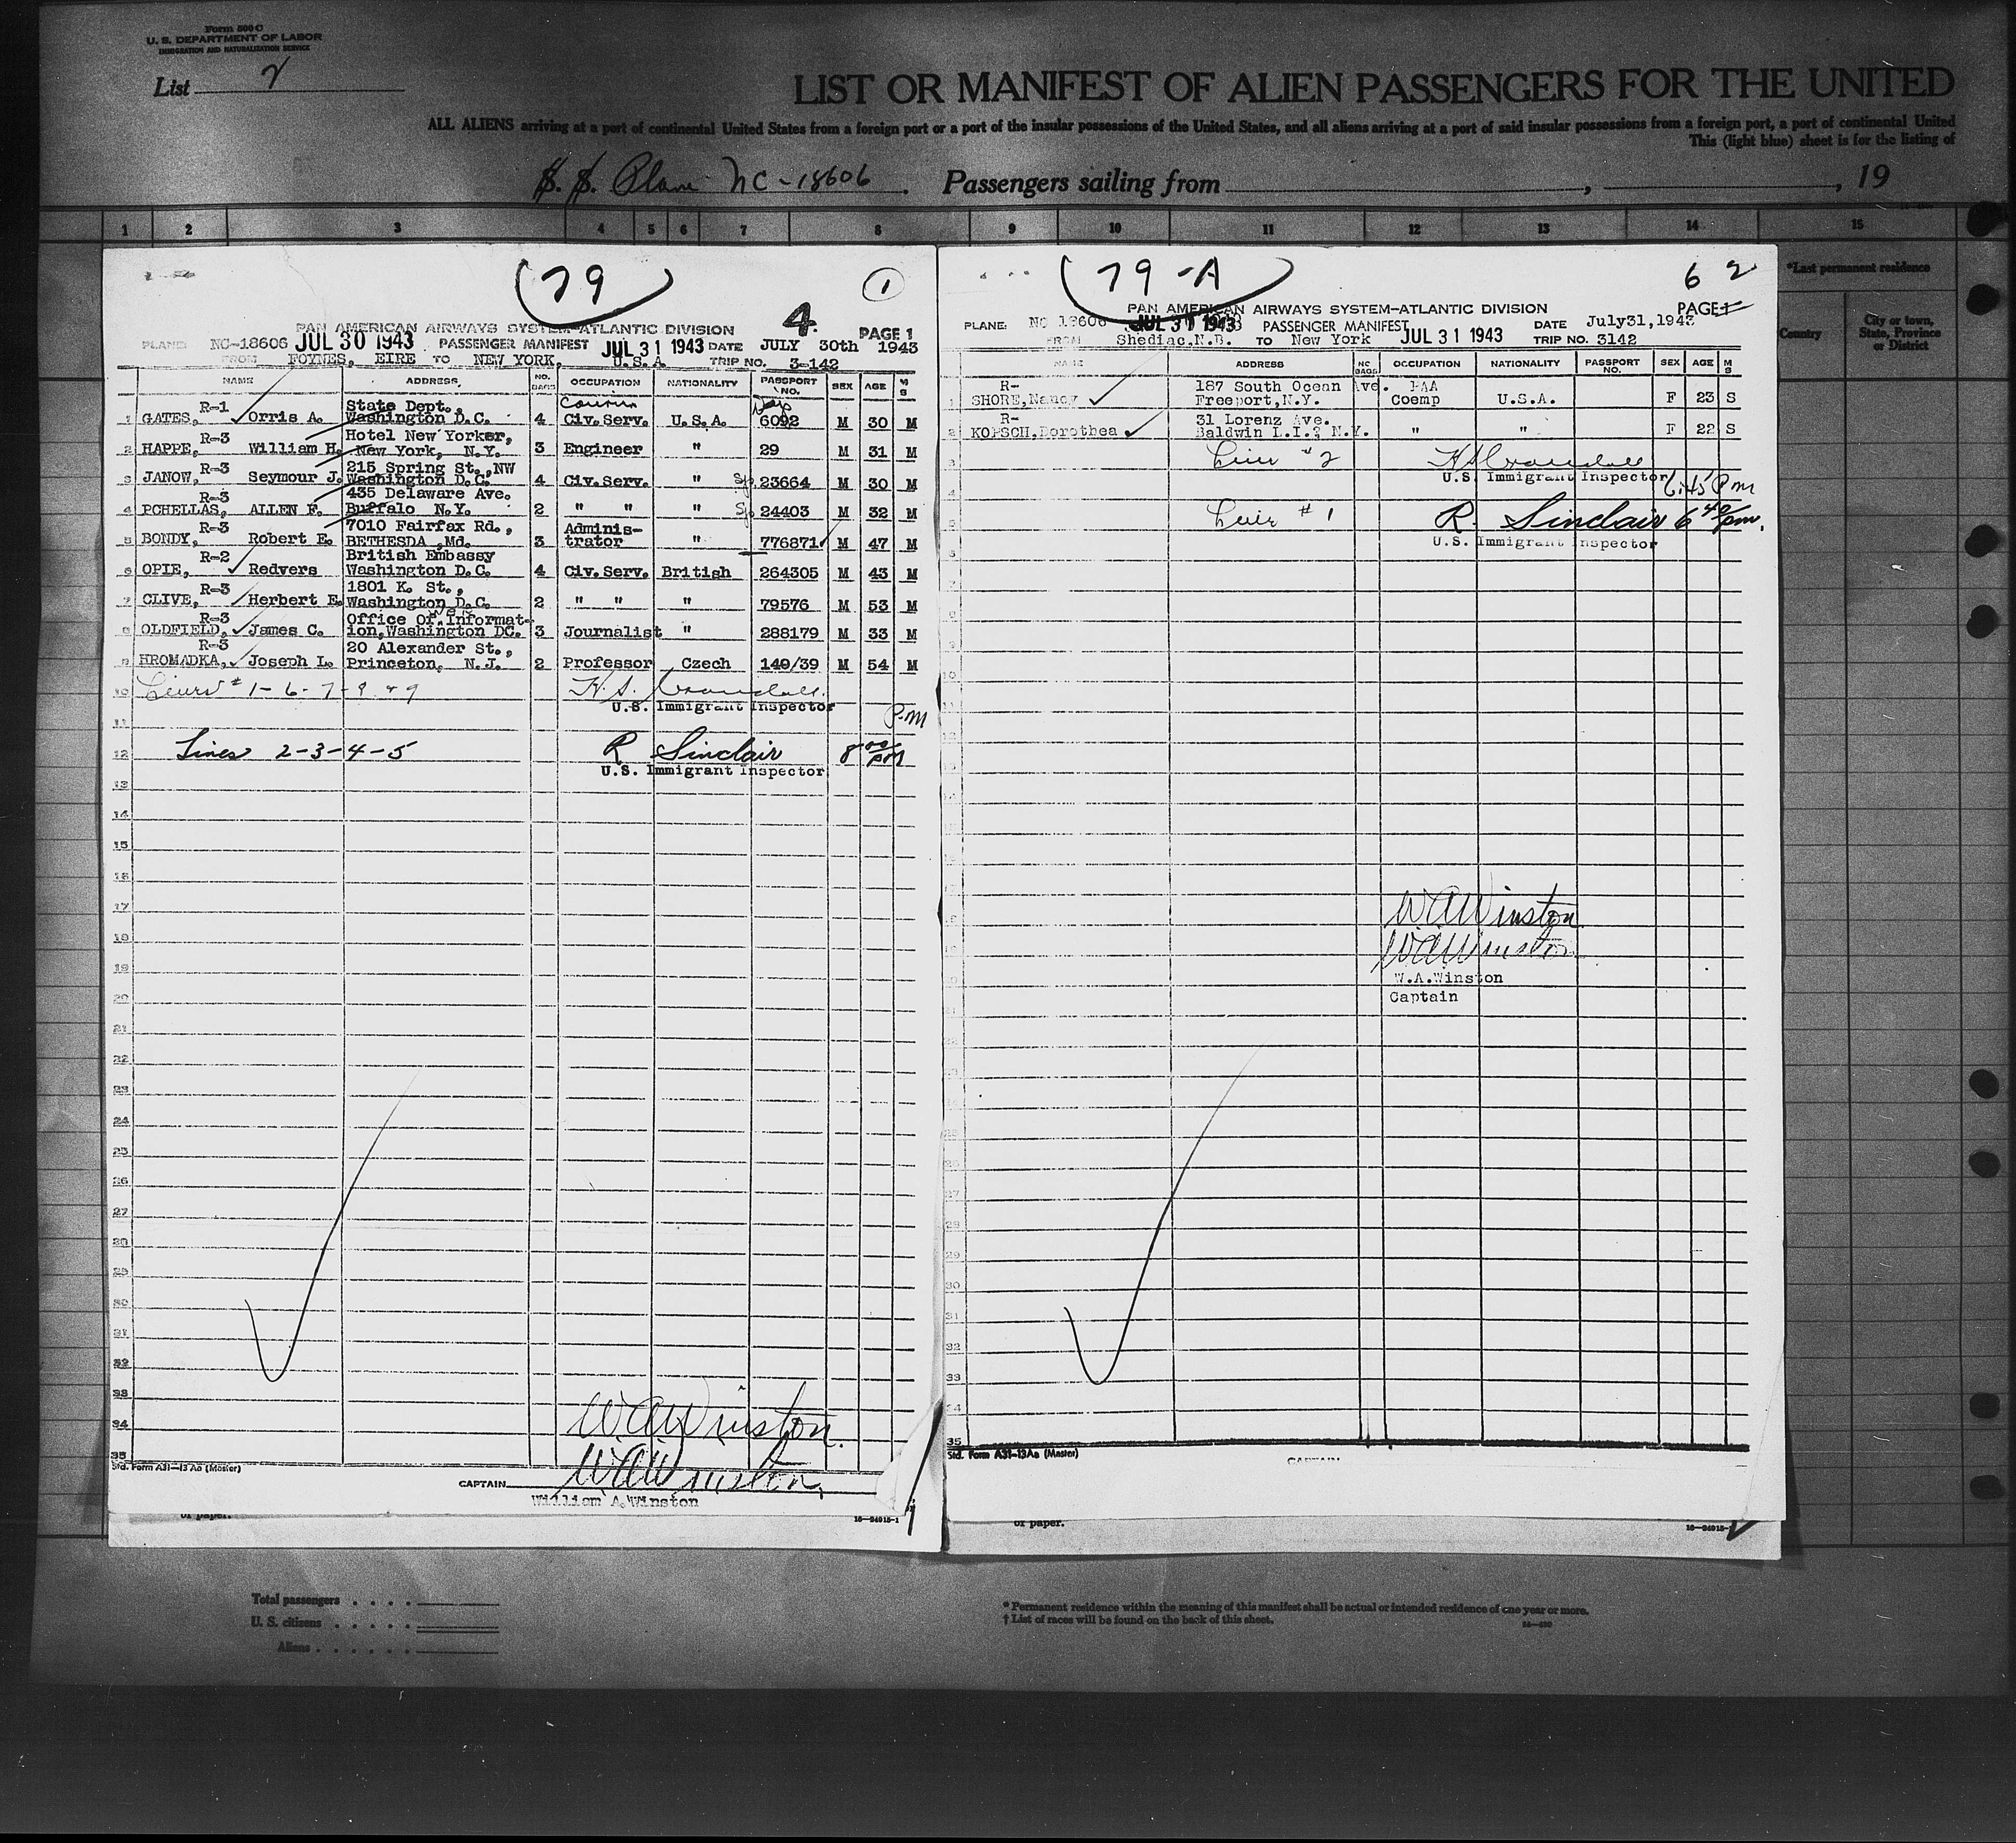 Form 500 C
U. S. DEPARTMENT OF LABOR
IMMIGRATION AND NATURALIZATION SERVICE
List 2
LIST OR MANIFEST OF ALIEN PASSENGERS FOR THE UNITED
ALL ALIENS arriving at a port of continental United States from a foreign port or a port of the insular possessions of the United States, and all aliens arriving at a port of said insular possessions from a foreign port, a port of continental United
This (light blue) sheet is for the listing of
S. S. Plane NC-18606. Passengers sailing from , , 19
1 2 3 4 5 6 7 8 9 10 11 12 13 14 15
*Last permanent residence
Country
City or town, State, Province or District
(79) 1
4.
PAN AMERICAN AIRWAYS SYSTEM-ATLANTIC DIVISION PAGE 1
PLANE: NC-18606 JUL 30 1943 PASSENGER MANIFEST JUL 31 1943 DATE JULY 30th 1943
FROM FOYNES, EIRE TO NEW YORK, U.S.A. TRIP NO. 3-142
NAME ADDRESS NO. BAGS OCCUPATION NATIONALITY PASSPORT NO. SEX AGE M S
R-1 State Dept., Courier
1 GATES, Orris A. Washington D.C. 4 Civ.Serv. U.S.A. 6092 M 30 M
R-3 Hotel New Yorker,
2 HAPPE, William H. New York, N.Y. 3 Engineer " 29 M 31 M
R-3 215 Spring St.,NW
3 JANOW, Seymour J. Washington D.C. 4 Civ.Serv. " Sp 23664 M 30 M
R-3 435 Delaware Ave.
4 PCHELLAS, ALLEN F. Buffalo N.Y. 2 " " " Sp 24403 M 32 M
R-3 7010 Fairfax Rd., Adminis-
5 BONDY, Robert E. BETHESDA ,Md. 3 trator " 776871 M 47 M
R-2 British Embassy
6 OPIE, Redvers Washington D.C. 4 Civ.Serv. British 264305 M 43 M
R-3 1801 K. St.,
7 CLIVE, Herbert E. Washington D.C. 2 " " " 79576 M 53 M
R-3 Office Of War Informat-
8 OLDFIELD, James C. ion,Washington DC. 3 Journalist " 288179 M 33 M
R-3 20 Alexander St.,
9 HROMADKA, Joseph L. Princeton, N.J. 2 Professor Czech 149/39 M 54 M
10 Lines #1-6-7-8 & 9 H.S. Crandall
U.S. Immigrant Inspector
11 P.M
12 Lines 2-3-4-5 R Sinclair 8 00 PM
U.S. Immigrant Inspector
13
14
15
16
17
18
19
20
21
22
23
24
25
26
27
28
29
30
31
32
33
34
35
W.A.Winston
W.A.Winston
Std. Form A31-13 Aa (Master)
CAPTAIN
William A. Winston
of paper.
16-24915-1
(79-A) 6 2
PAN AMERICAN AIRWAYS SYSTEM-ATLANTIC DIVISION PAGE 1
PLANE: NC 18606 JUL 31 1943 PASSENGER MANIFEST JUL 31 1943 DATE July31,1943
FROM Shediac,N.B. TO New York TRIP NO. 3142
NAME ADDRESS NO BAGS OCCUPATION NATIONALITY PASSPORT NO. SEX AGE M S
R- 187 South Ocean Ave. PAA
1 SHORE,Nancy Freeport,N.Y. Coemp U.S.A. F 23 S
R- 31 Lorenz Ave.
2 KOPSCH,Dorothea Baldwin L.I., N.Y. " " F 22 S
3 Line #2 H S Crandall
U.S. Immigrant Inspector 6:45 Pm
Line # 1 R. Sinclair 6 40 pm.
U.S. Immigrant Inspector
W.A.Winston
W.A.Winston
W.A.Winston
Captain
29
30
31
32
33
35
Std. Form A31-13Aa (Master)
CAPTAIN
of paper.
16-24915-1
Total passengers
U. S. citizens
Aliens
* Permanent residence within the meaning of this manifest shall be actual or intended residence of one year or more.
† List of races will be found on the back of this sheet.